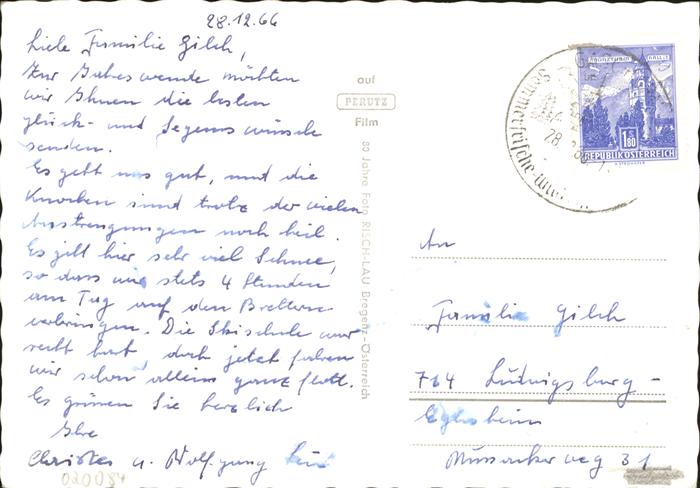 28.12.66
Liebe Familie Gilch,
Zur Jahreswende möchten
wir Ihnen die besten
Glück- und Segenswünsche
senden.
Es geht uns gut, und die
Knochen sind trotz der vielen
Anstrengungen noch heil.
Es gibt hier sehr viel Schnee,
so dass wir stets 4 Stunden
am Tag auf den Brettern
verbringen. Die Skischule war
recht hart, doch jetzt fahren
wir schon allein ganz flott.
Es grüssen Sie herzlich
Ihre
u. Wolfgang
020084
auf
PERUTZ
Film
80 Jahre Foto RISCH-LAU Bregenz-Österreich
Sommerfrische
28.
1.80
REPUBLIK ÖSTERREICH
An
Familie Gilch
714 Ludwigsburg-
Eglosheim
weg 31